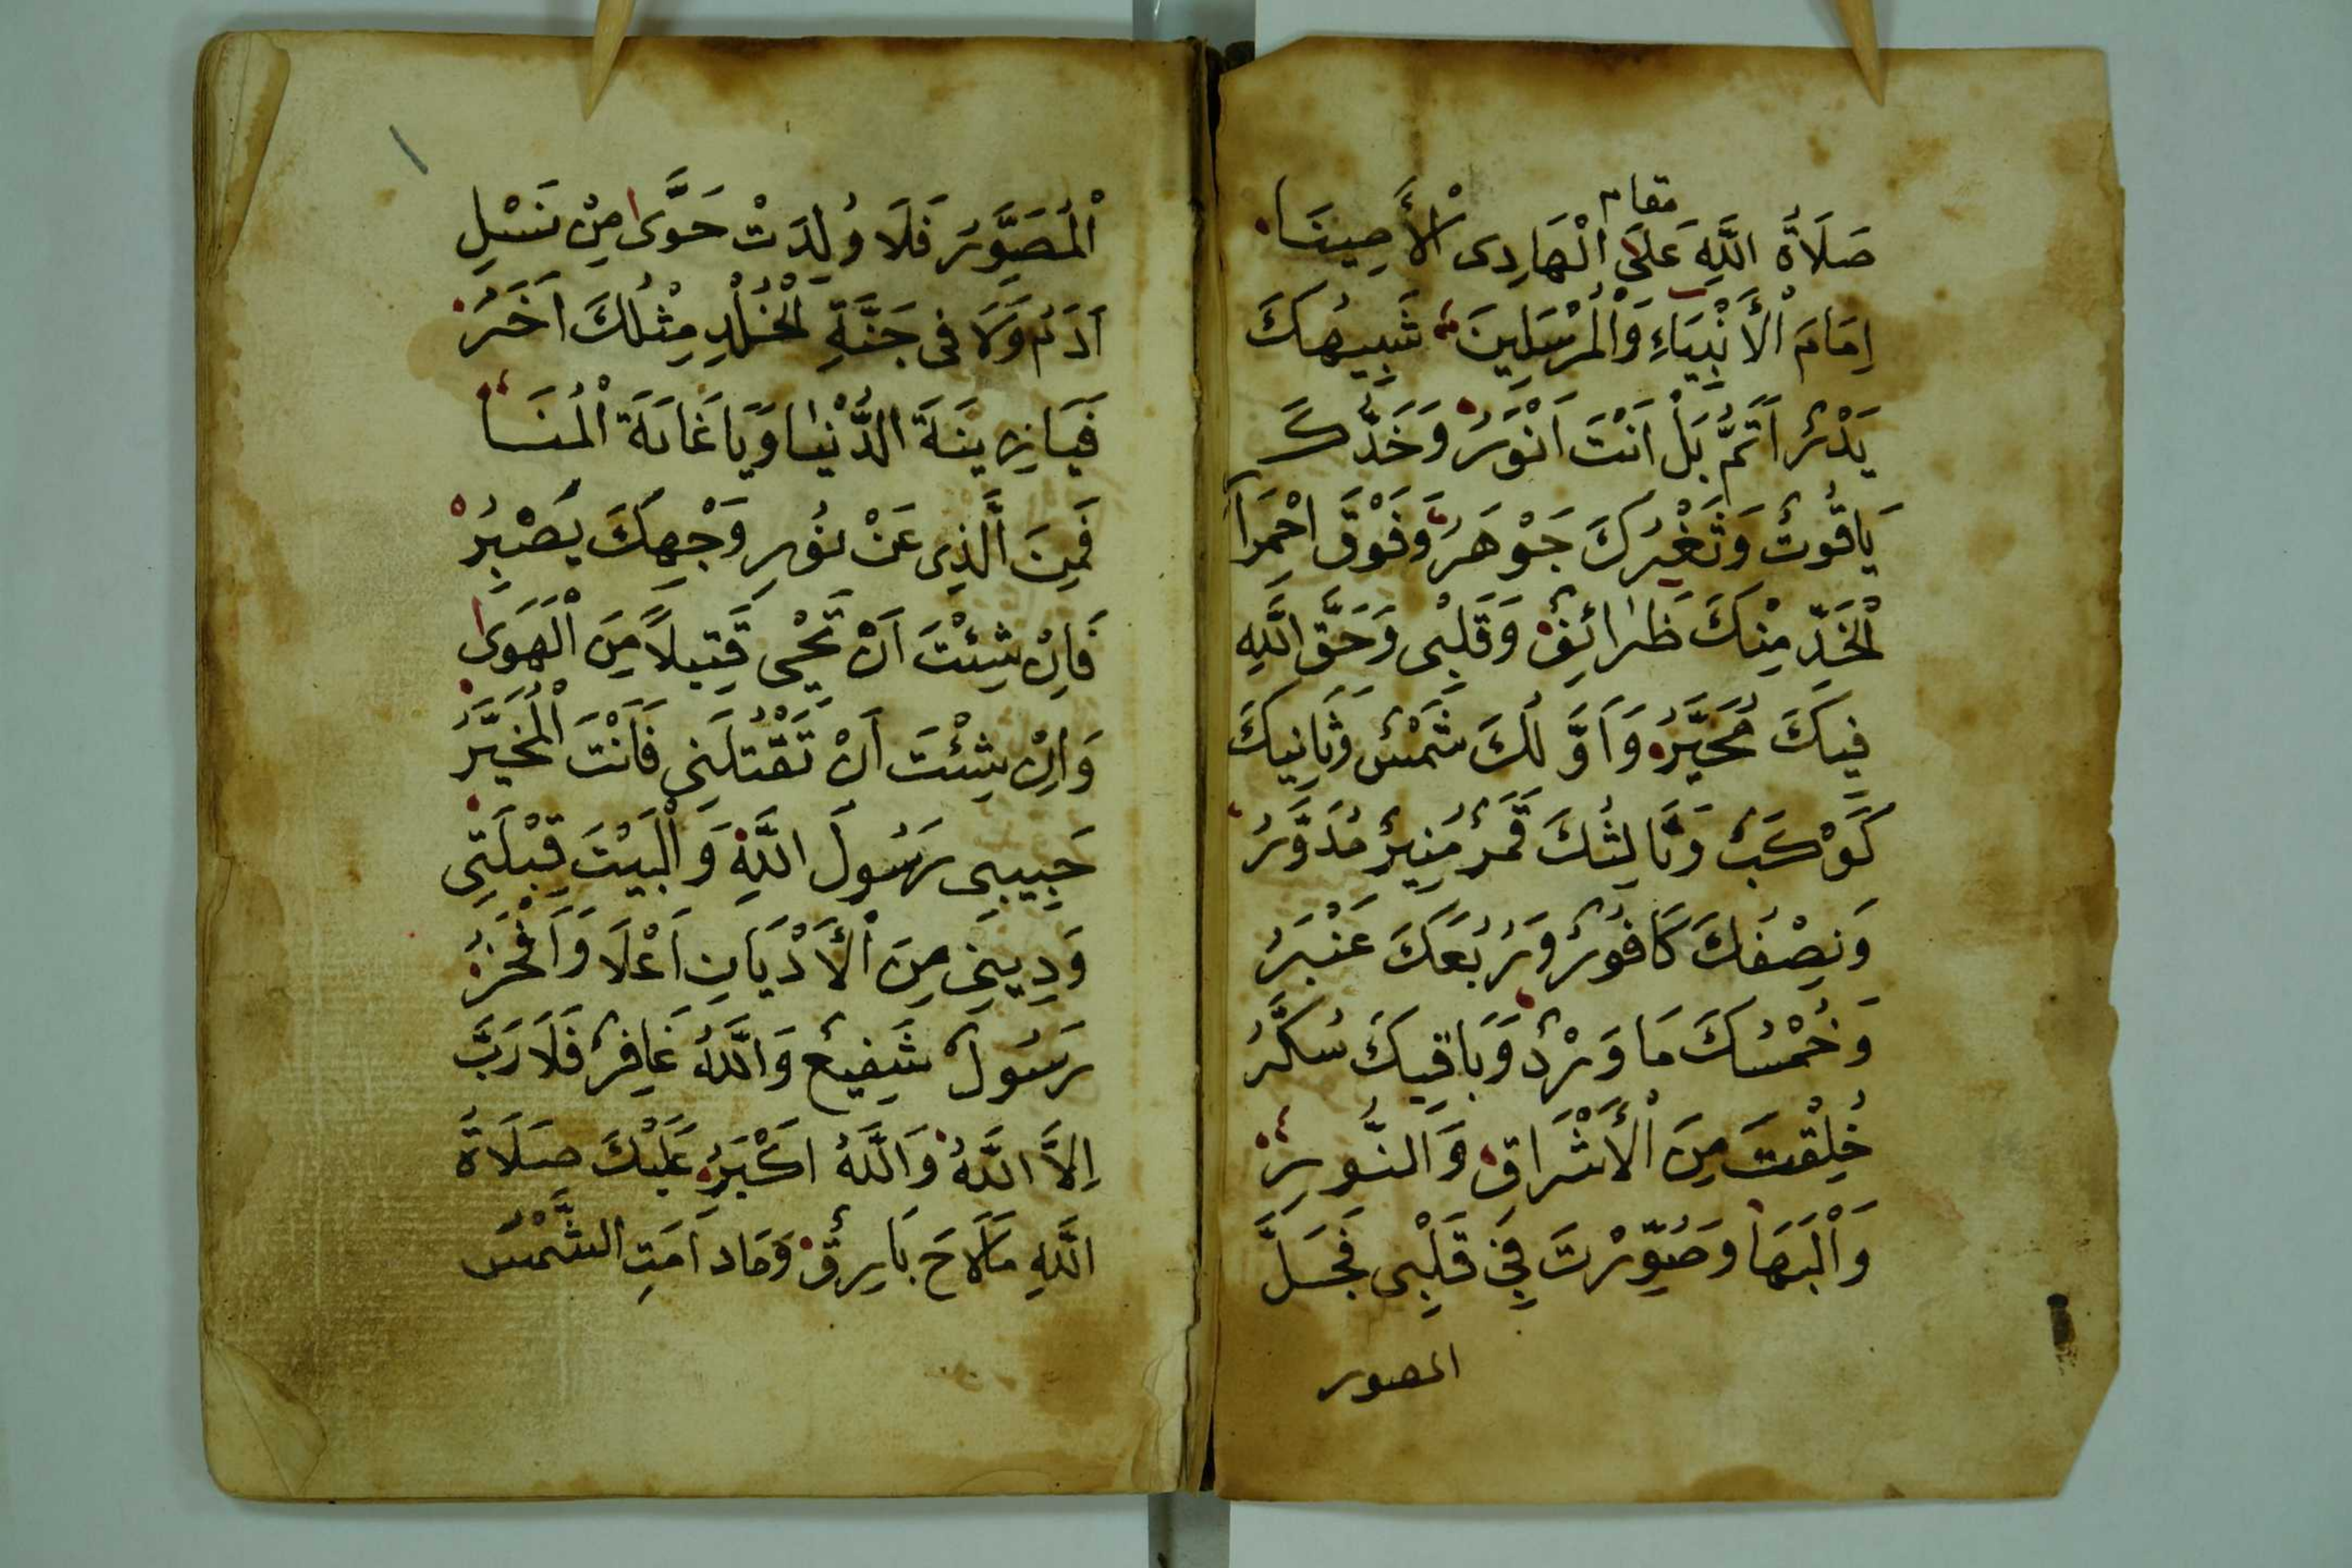 مقام
صَلَاةُ اللَّهِ عَلَى الْهَادِى الْأَمِينَا
اِمَامَ الْأَنْبِيَاءِ وَالْمُرْسَلِينَ شَبِيهُكَ
بَدْرٌ اَتَمُّ بَلْ اَنْتَ اَنْوَرُ وَخَدُّكَ
يَاقُوتٌ وَثَغْرُكَ جَوْهَرُ وَفَوْقَ احْمَرَ
الْخَدِّ مِنْكَ ظَرَائِفٌ وَقَلْبِى وَحَقَّ اللَّهِ
فِيكَ مُحَيَّرُ وَاَوَّلُكَ شَمْسٌ وَثَانِيكَ
كَوْكَبٌ وَثَالِثُكَ قَمَرٌ مُنِيرٌ مُدَوَّرُ
وَنِصْفُكَ كَافُورٌ وَرُبْعُكَ عَنْبَرُ
وَخُمْسُكَ مَا وَرْدٌ وَبَاقِيكَ سُكَّرُ
خُلِقْتَ مِنَ الْأَشْرَاقِ وَالنُّورِ
وَالْبَهَا وَصُوِّرْتَ فِى قَلْبِى فَجَلَّ
المصور
الْمُصَوِّرُ فَلَا وُلِدَتْ حَوَّى مِنْ نَسْلِ
اَدَمُ وَلَا فِى جَنَّةِ الْخُلْدِ مِثْلُكَ اَخَرُ
فَيَا زِينَةَ الدُّنْيَا وَيَا غَايَةَ الْمُنَا
فَمِنَ الَّذِى عَنْ نُورِ وَجْهِكَ يَصْبِرُ
فَاِنْ شِئْتَ اَنْ تَحْيِى قَتِيلاً مِنَ الْهَوَى
وَاِنْ شِئْتَ اَنْ تَقْتُلَنِى فَاَنْتَ الْمُخَيَّرُ
حَبِيبِى رَسُولَ اللَّهِ وَالْبَيْتَ قِبْلَتِى
وَدِينِى مِنَ الْأَدْيَانِ اَعْلَا وَاَفْخَرُ
رَسُولٌ شَفِيعٌ وَاللَّهُ غَافِرٌ فَلَا رَبَّ
اِلاَّ اللَّهُ وَاللَّهُ اَكْبَرُ عَلَيْكَ صَلَاةُ
اللَّهِ مَا لَاحَ بَارِقٌ وَمَا دَامَتِ الشَّمْسُ